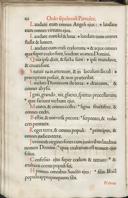 Ordo sepeliendi Parvulos.
Laudate eum omnes Angeli eius: * laudate
eum omnes virtutes eius.
Laudate eum sol & luna: * laudate eum omnes
stellæ & lumen.
Laudate eum cæli cælorum: & aquæ omnes
quæ super cælos sunt, laudent nomen Domini.
Quia ipse dixit, & facta sunt: * ipse mandavit,
& creata sunt.
Statuit ea in æternum, & in sæculum sæculi: *
præceptum posuit, & non præteribit.
Laudate Dominum de terra: * dracones, &
omnes abyssi.
Ignis, grando, nix, glacies, spiritus procellarum:
* quæ faciunt verbum eius.
Montes, & omnes colles: * ligna fructifera, &
omnes cedri.
Bestiæ, & universa pecora: * serpentes, & volucres
pennatæ.
Reges terræ, & omnes populi: * principes, &
omnes iudices terræ.
Iuvenes & virgines: senes cum iunioribus laudent
nomen Domini: * quia exaltatum est nomen eius
solius.
Confessio eius super cælum & terram: * &
exaltavit cornu populi sui.
Hymnus omnibus Sanctis eius: * filiis Israel
populo appropinquanti sibi.